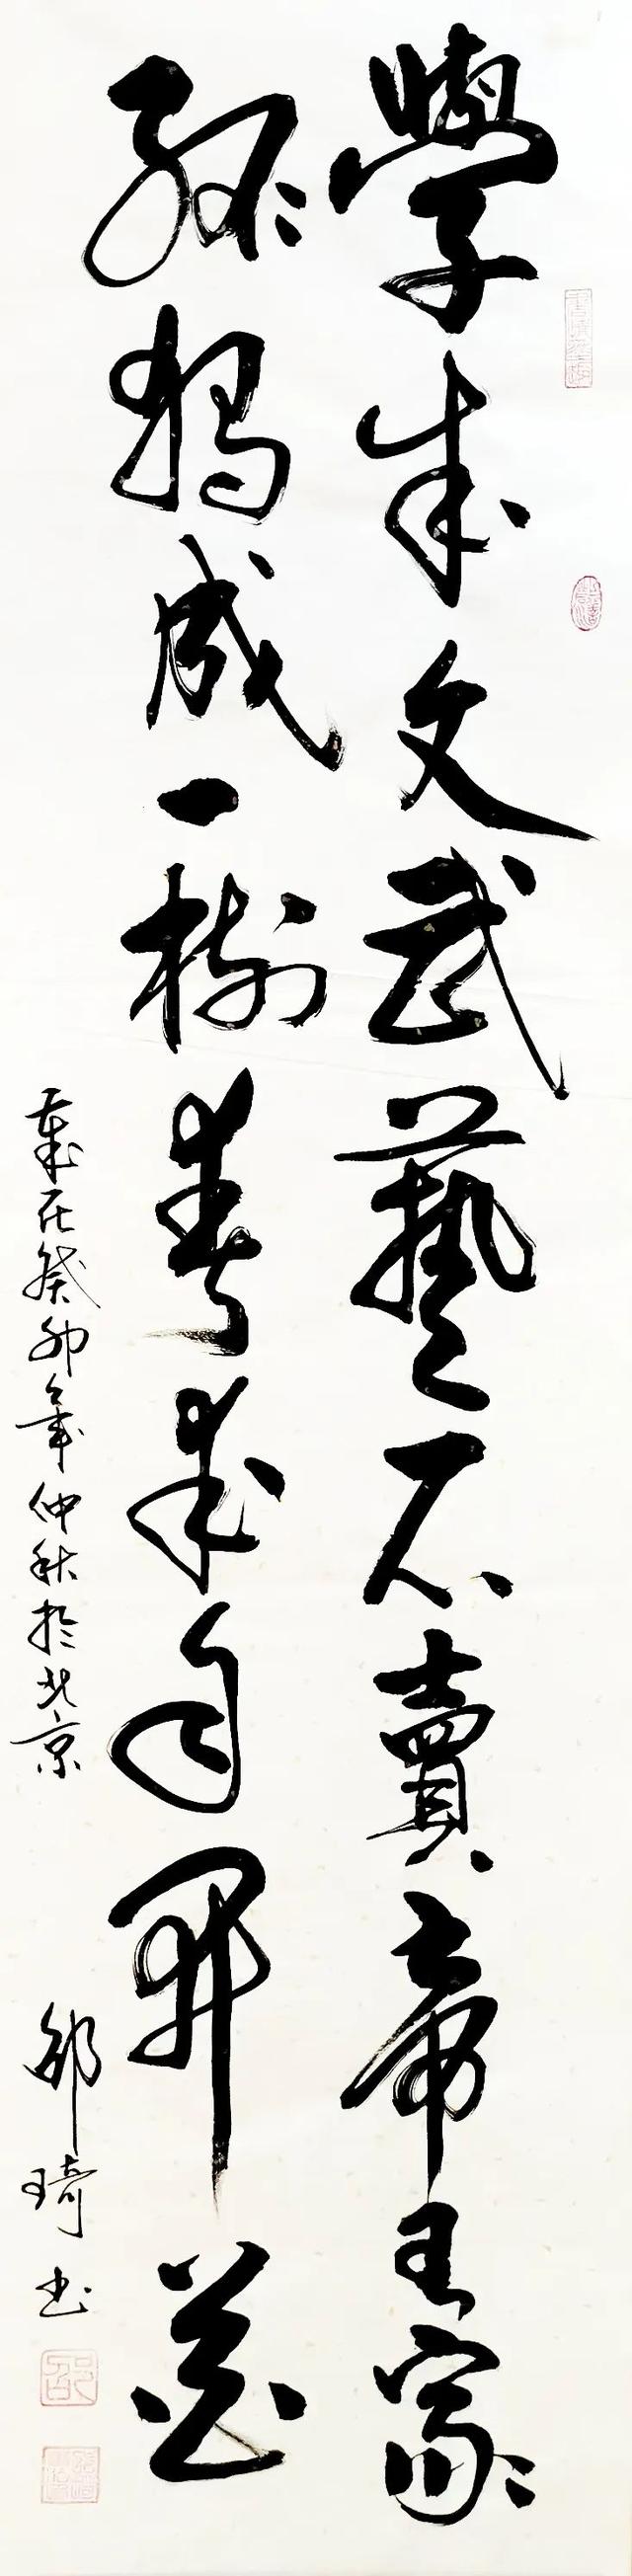 學成文武藝不賣帝王家
孤獨成一樹春來自開花
歲在癸卯年仲秋於北京
邵琦書